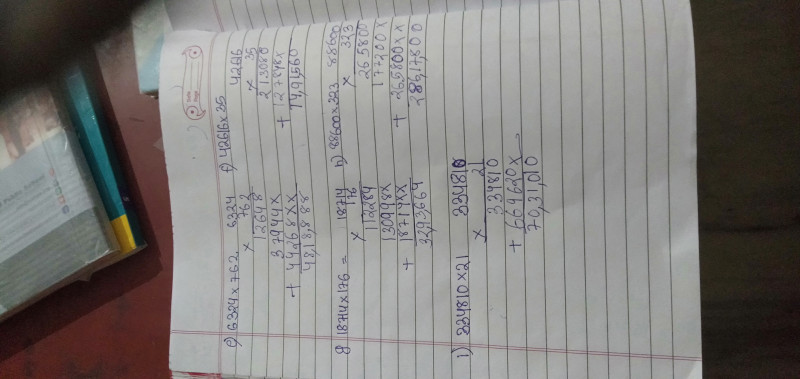 e) 6324 x 762, 6324
x 762
12648
37944x
+ 44268xx
48,18,888
f) 42616 x 35 42616
x 35
213080
+ 127848x
14,91,560
g) 18714 x 176 = 18714
x 176
112284
130998x
+ 18714xx
3293664
h) 88600 x 323 88600
x 323
265800
177200x
+ 265800xx
286,17,800
i) 334810 x 21 334810
x 21
334810
+ 669620x
70,31,010